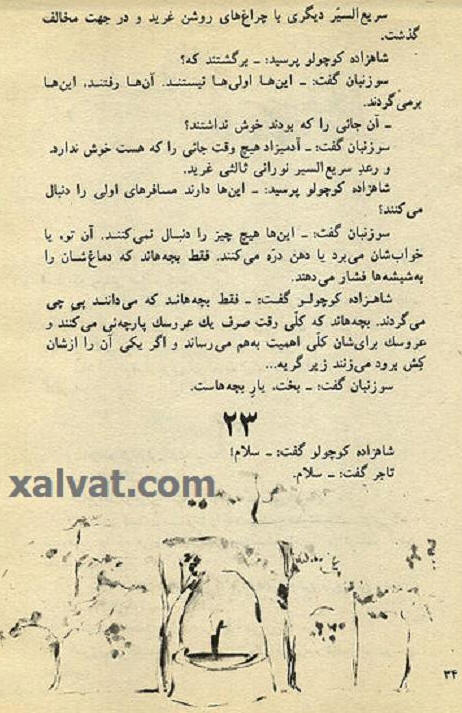 سریع‌السیّر دیگری با چراغ‌های روشن غرید و در جهت مخالف
گذشت.
شاهزاده کوچولو پرسید: ـ برگشتند که؟
سوزنبان گفت: ـ این‌ها اولی‌ها نیستند. آن‌ها رفتند، این‌ها
برمی‌گردند.
ـ آن جائی را که بودند خوش نداشتند؟
سوزنبان گفت: ـ آدمیزاد هیچ وقت جائی را که هست خوش ندارد.
و رعدِ سریع‌السیر نورانی ثالثی غرید.
شاهزاده کوچولو پرسید: ـ این‌ها دارند مسافرهای اولی را دنبال
می‌کنند؟
سوزنبان گفت: ـ این‌ها هیچ چیز را دنبال نمی‌کنند. آن تو، یا
خواب‌شان می‌برد یا دهن درّه می‌کنند. فقط بچه‌هاند که دماغ‌شان را
به‌شیشه‌ها فشار می‌دهند.
شاهزاده کوچولو گفت: ـ فقط بچه‌هاند که می‌دانند پی چی
می‌گردند. بچه‌هاند که کلّی وقت صرف یك عروسك پارچه‌ئی می‌کنند و
عروسك برای‌شان کلّی اهمیت به‌هم می‌رساند و اگر یکی آن را ازشان
کِش برود می‌زنند زیر گریه...
سوزنبان گفت: ـ بخت، یارِ بچه‌هاست.
۲۳
شاهزاده کوچولو گفت: ـ سلام!
تاجر گفت: ـ سلام.
xalvat.com
۳۴